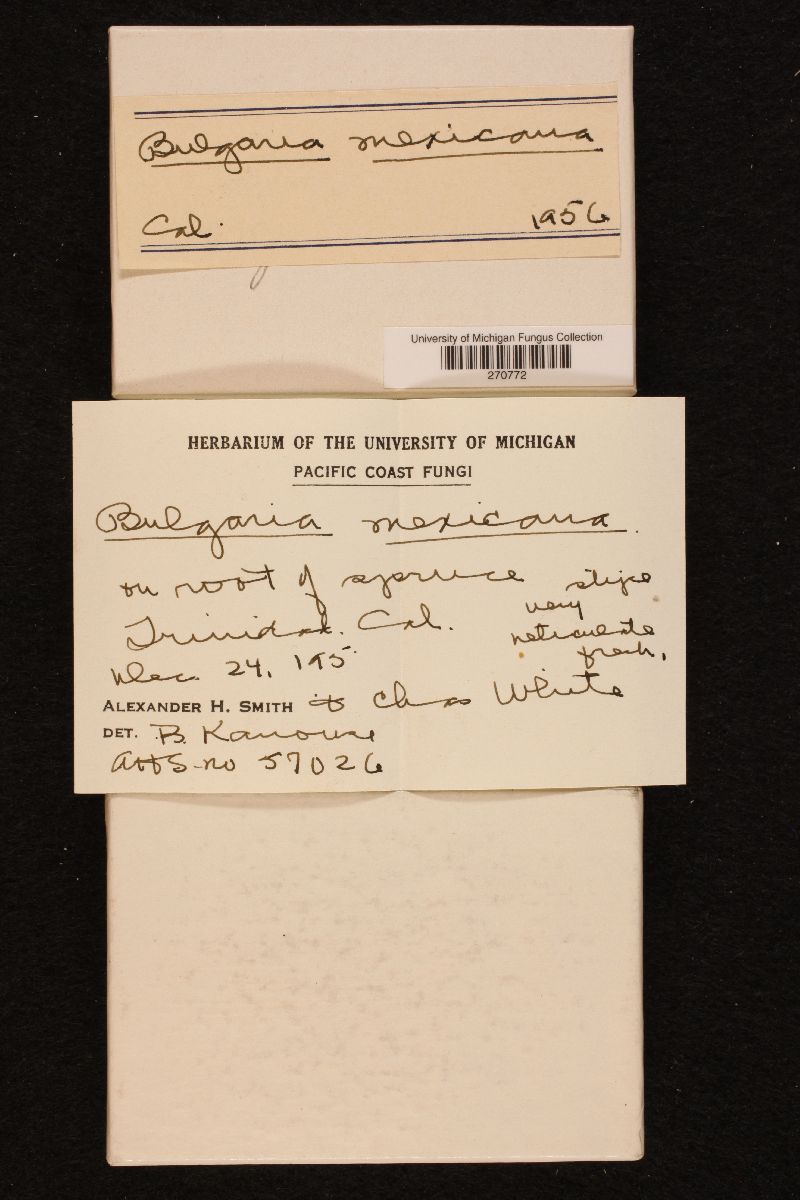 Bulgaria mexicana
Cal. 1956
University of Michigan Fungus Collection
270772
HERBARIUM OF THE UNIVERSITY OF MICHIGAN
PACIFIC COAST FUNGI
Bulgaria mexicana.
on root of spruce
Trinidad. Cal.
Dec. 24, 195
stipe
very
reticulate
fresh.
ALEXANDER H. SMITH & Chas White
DET. B. Kanouse
AHS-no 57026